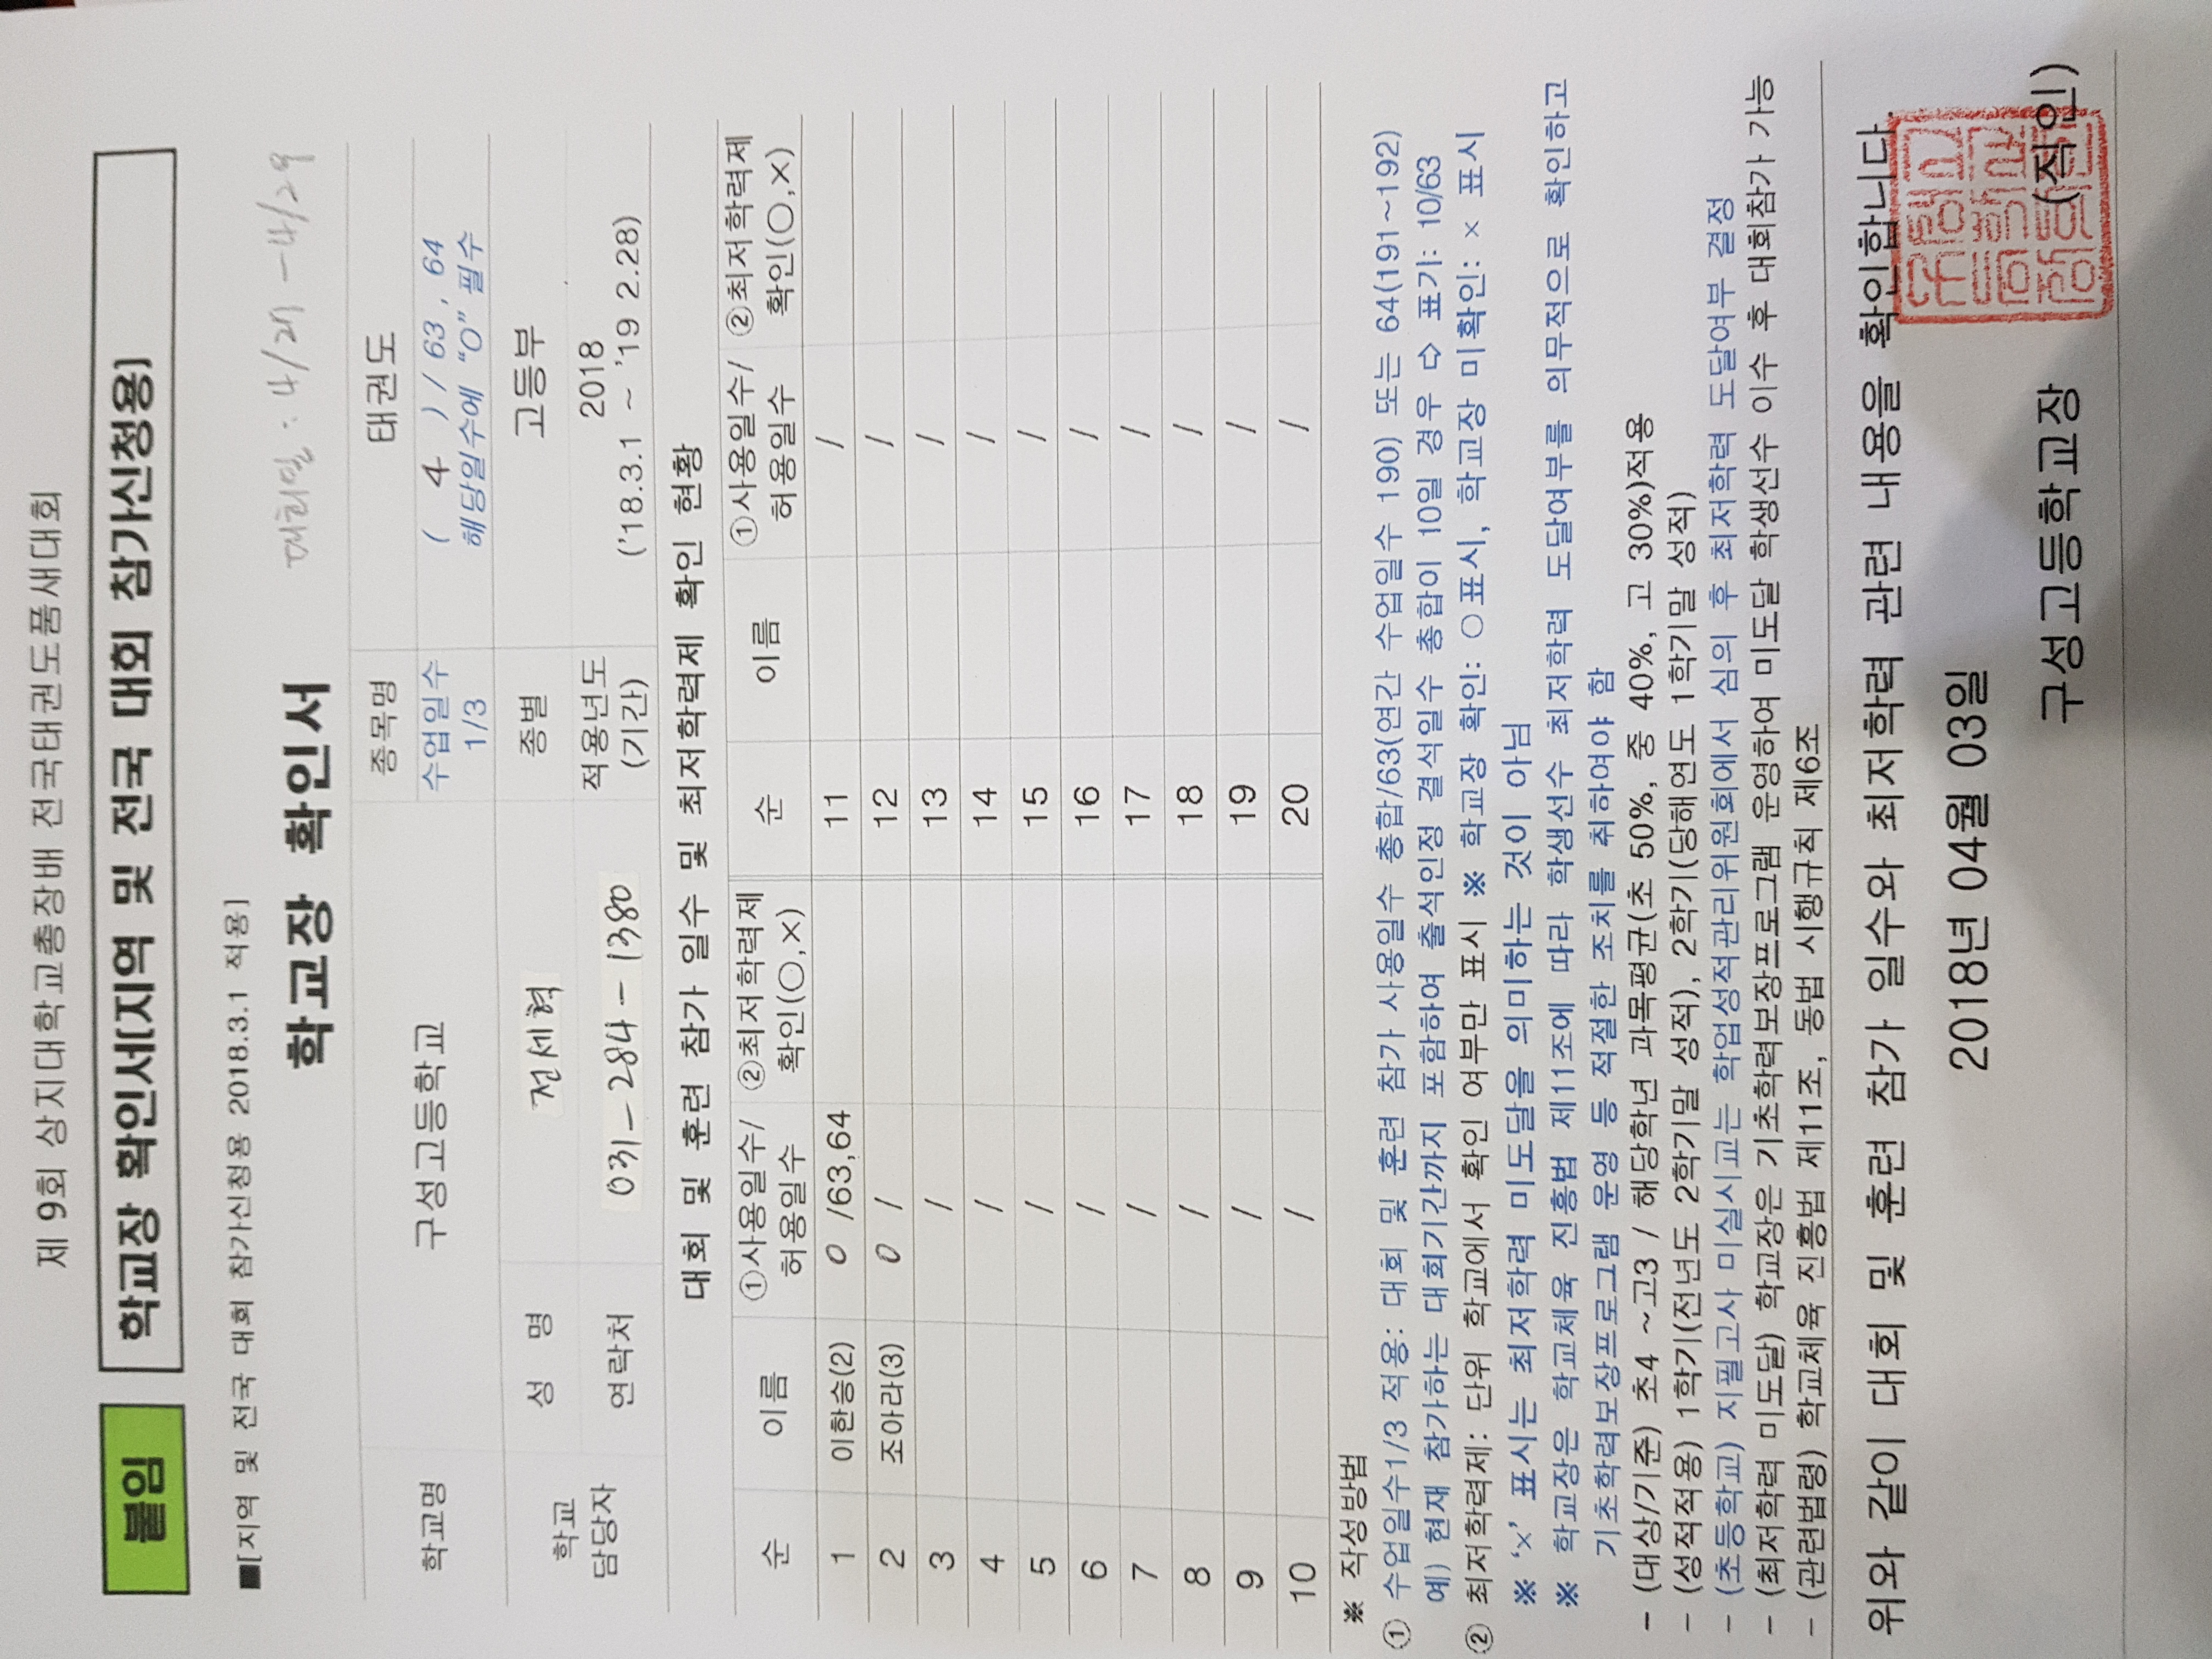 제 9회 상지대학교총장배 전국태권도품새대회
붙임 학교장 확인서[지역 및 전국 대회 참가신청용)
■[지역 및 전국 대회 참가신청용 2018.3.1 적용]
대회일 : 4/27 - 4/29
학교장 확인서
학교명 구성고등학교 종목명 태권도
수업일수 1/3 ( 4 ) / 63 , 64
해당일수에 "O" 필수
학교 담당자 성 명 전세혁 종별 고등부
연락처 031-284-1380 적용년도 (기간) 2018
('18.3.1 ~ '19 2.28)
대회 및 훈련 참가 일수 및 최저학력제 확인 현황
순 이름 ①사용일수/허용일수 ②최저학력제 확인(○,×) 순 이름 ①사용일수/허용일수 ②최저학력제 확인(○,×)
1 이한승(2) 0 /63,64 11 /
2 조아라(3) 0 / 12 /
3 / 13 /
4 / 14 /
5 / 15 /
6 / 16 /
7 / 17 /
8 / 18 /
9 / 19 /
10 / 20 /
※ 작성방법
① 수업일수1/3 적용: 대회 및 훈련 참가 사용일수 총합/63(연간 수업일수 190) 또는 64(191~192)
예) 현재 참가하는 대회기간까지 포함하여 출석인정 결석일수 총합이 10일 경우 ⇨ 표기: 10/63
② 최저학력제: 단위 학교에서 확인 여부만 표시 ※ 학교장 확인: ○표시, 학교장 미확인: × 표시
※ '×' 표시는 최저학력 미도달을 의미하는 것이 아님
※ 학교장은 학교체육 진흥법 제11조에 따라 학생선수 최저학력 도달여부를 의무적으로 확인하고
기초학력보장프로그램 운영 등 적절한 조치를 취하여야 함
- (대상/기준) 초4 ~고3 / 해당학년 과목평균(초 50%, 중 40%, 고 30%)적용
- (성적적용) 1학기(전년도 2학기말 성적), 2학기(당해연도 1학기말 성적)
- (초등학교) 지필고사 미실시교는 학업성적관리위원회에서 심의 후 최저학력 도달여부 결정
- (최저학력 미도달) 학교장은 기초학력보장프로그램 운영하여 미도달 학생선수 이수 후 대회참가 가능
- (관련법령) 학교체육 진흥법 제11조, 동법 시행규칙 제6조
위와 같이 대회 및 훈련 참가 일수와 최저학력 관련 내용을 확인합니다.
2018년 04월 03일
구성고등학교장 (직인)